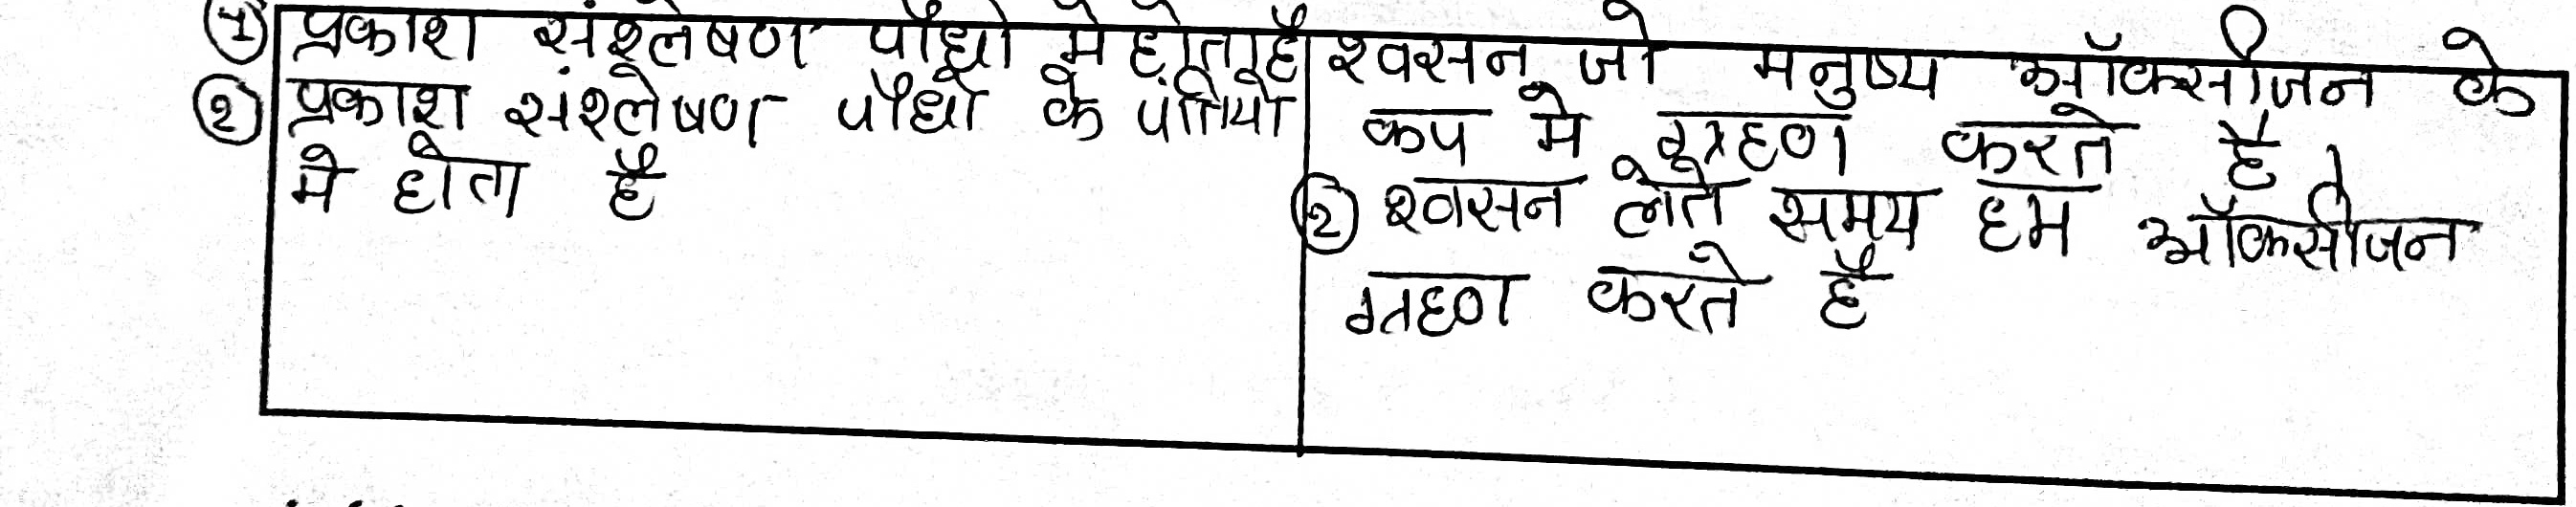 ① प्रकाश संश्लेषण पौधो मे होता है
② प्रकाश संश्लेषण पौधो के पत्तियो
मे होता है
श्वसन जो मनुष्य ऑक्सीजन के
रूप मे ग्रहण करते है।
② श्वसन लेते समय हम ऑक्सीजन
ग्रहण करते है